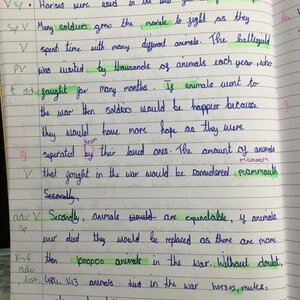 • Horses were used in the war
Sp V Many soldiers gave the morale to fight as they
V spent time with many different animals. The battlefield
PV was wasted by thousands of animals each year, who
t adv fought for many months. If animals went to
the war then soldiers would be happier because
they would have more hope as they were
from
g seperated by their loved ones. The amount of animals
mammoth
V that fought in the war would be considered mammouth
Secondly,
adv V Secondly, animals would are expendable, if animals
Sp ever died they would be replaced as there are more
Y-f then animals in the war. Without doubt,
adv list 484, 143 animals died in the war horses, mules,